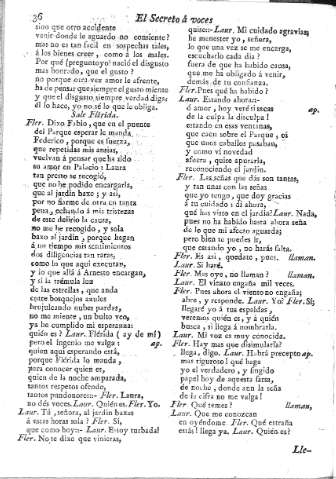 36
El Secreto á voces
sino que otro accidente
venir donde le aguardo no consiente?
mas no es tan facil en sospechas tales,
á los bienes creer, como á los males.
Por qué (pregunto yo) nació el disgusto
mas honrado, que el gusto?
no porque
ha de pensar que siempre el gusto miento
y que el disgusto siempre verdad diga:
él lo hace, yo no sé lo que le obliga.
Sale Flérida.
Fler. Dixo Fabio, que en el puente
del Parque esperar le manda
Federico, porque es fuerza,
que repetidas mis ansias,
vuelvan á pensar que ha sido
su amor en Palacio: Laura
tan presto se recogió,
que no he podido encargarla,
que al jardin baxe; y asi,
por no fiarme de otra en tanta
pena, echando á mis tristezas
de este delirio la causa,
no me he recogido, y sola
baxo al jardin, porque hagan
á un tiempo mis sentimientos
dos diligencias tan raras,
como la que aqui executan,
y lo que allá á Ernesto encargan,
y si la trémula luz
de las estrellas, que anda
entre bosquejos azules
bruxuleando nubes pardas,
no me miente, un bulto veo,
ya he cumplido mi esperanza:
quién es? Laur. Flérida (ay de mi)
pero el ingenio me valga: ap.
quien aqui esperando está,
porque Flérida lo manda,
para conocer quien es,
quien de la noche amparada,
tantos respetos ofende,
tantos pundonores. Fler. Laura,
no dés voces. Laur. Quién es? Fler. Yo.
Laur. Tú, señora, al jardin baxas
á estas horas sola? Fler. Sí,
que como hoy Laur. Estoy turbada!
Fler. No te dixe que vinieras,
quise Laur. Mi cuidado agravias;
he menester yo, señora,
lo que una vez se me encarga,
escucharlo cada dia?
fuera de que ha habido causa,
que me ha obligado á venir,
demás de tu confianza.
Fler. Pues qué ha habido?
Laur. Estando ahora
ó amor, hoy veré si escas ap.
de la culpa la disculpa!
estando en esas ventanas,
que caen sobre el Parque, oí
que unos caballos pasaban,
y como ví novedad
afuera, quise apurarla,
reconociendo el jardin.
Fler. Las señas que das son tantas,
y tan unas con las señas
que yo tengo, que doy gracias
á tu cuidado: dí ahora,
qué has visto en el jardin? Laur. Nada,
pues no ha habido hasta ahora seña
de lo que mi afecto aguarda;
pero bien te puedes ir,
que estando yo, no harás falta.
Fler. Es asi, quedate, pues. llaman.
Laur. Sí haré.
Fler. Mas oye, no llaman? llaman.
Laur. El viento engaña mil veces.
Fler. Pues ahora el viento no engaña;
abre, y responde. Laur. Yo? Fler. Sí;
llegaré yo á tus espaldas,
veremos quién es, y á quién
busca, si llega á nombrarla.
Laur. Mi voz es muy conocida.
Fler. Hay mas que disimularla?
llega, digo. Laur. Habrá precepto ap.
mas riguroso! qué haga
yo el verdadero, y fingido
papel hoy de aquesta farsa,
de noche, donde aun la seña
de la cifra no me valga!
Fler. Qué temes? llaman,
Laur. Que me conozcan
en oyéndome. Fler. Qué extraña
estás! llega ya. Laur. Quién es?
Lle-